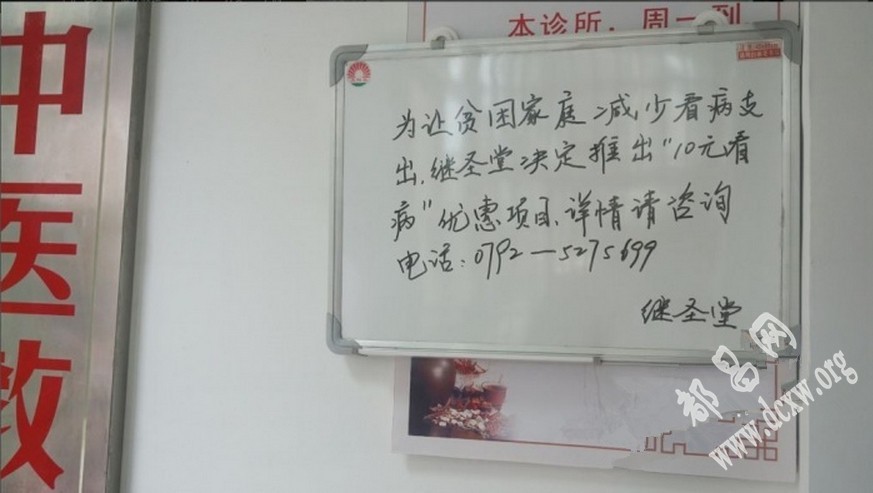 中医教
本诊所,周一到
为让贫困家庭减少看病支
出,继圣堂决定推出"10元看
病"优惠项目,详情请咨询
电话:0792—5275699
继圣堂
都昌网
www.dcxw.org